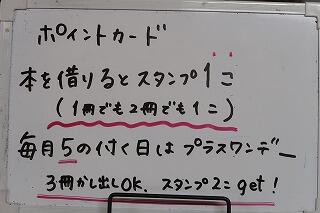 ポイントカード
本を借りるとスタンプ1こ
(1冊でも2冊でも1こ)
毎月5の付く日はプラスワンデー
3冊かし出しOK、スタンプ2こget!